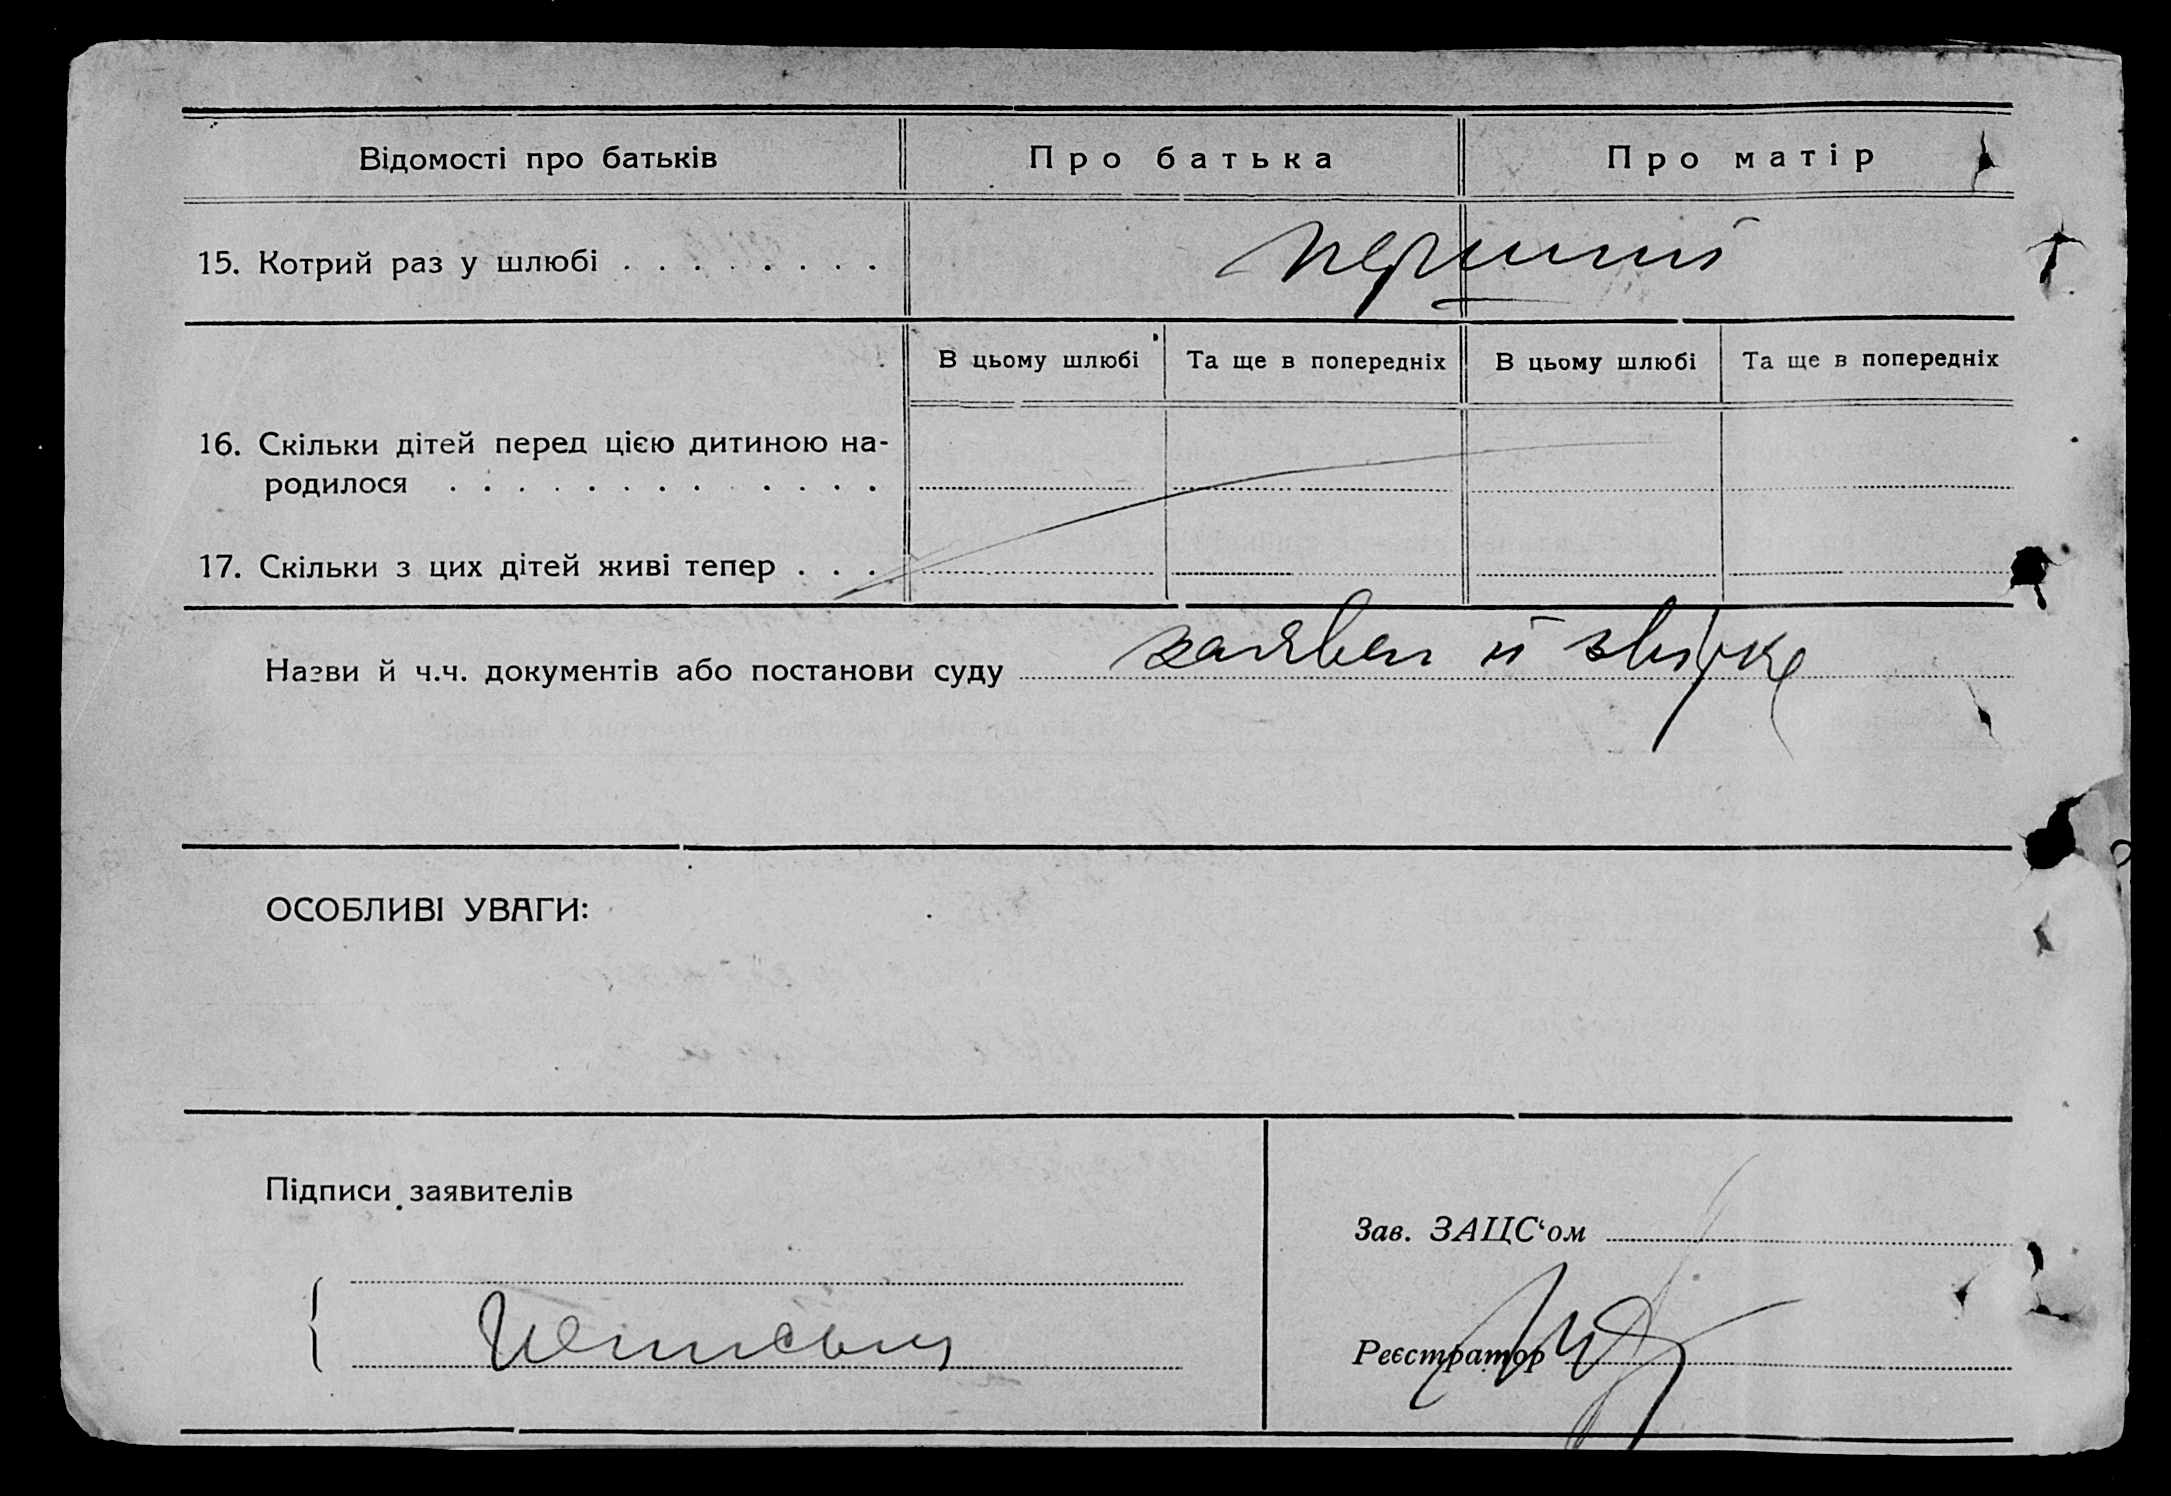 Відомості про батьків Про батька Про матір
15. Котрий раз у шлюбі . . . . . . . . перший
В цьому шлюбі Та ще в попередніх В цьому шлюбі Та ще в попередніх
16. Скільки дітей перед цією дитиною на-
родилося . . . . . . . . . . . . .
17. Скільки з цих дітей живі тепер . . .
Назви й ч.ч. документів або постанови суду
ОСОБЛИВІ УВАГИ:
Підписи заявителів
Зав. ЗАЦС‘ом
Реєстратор